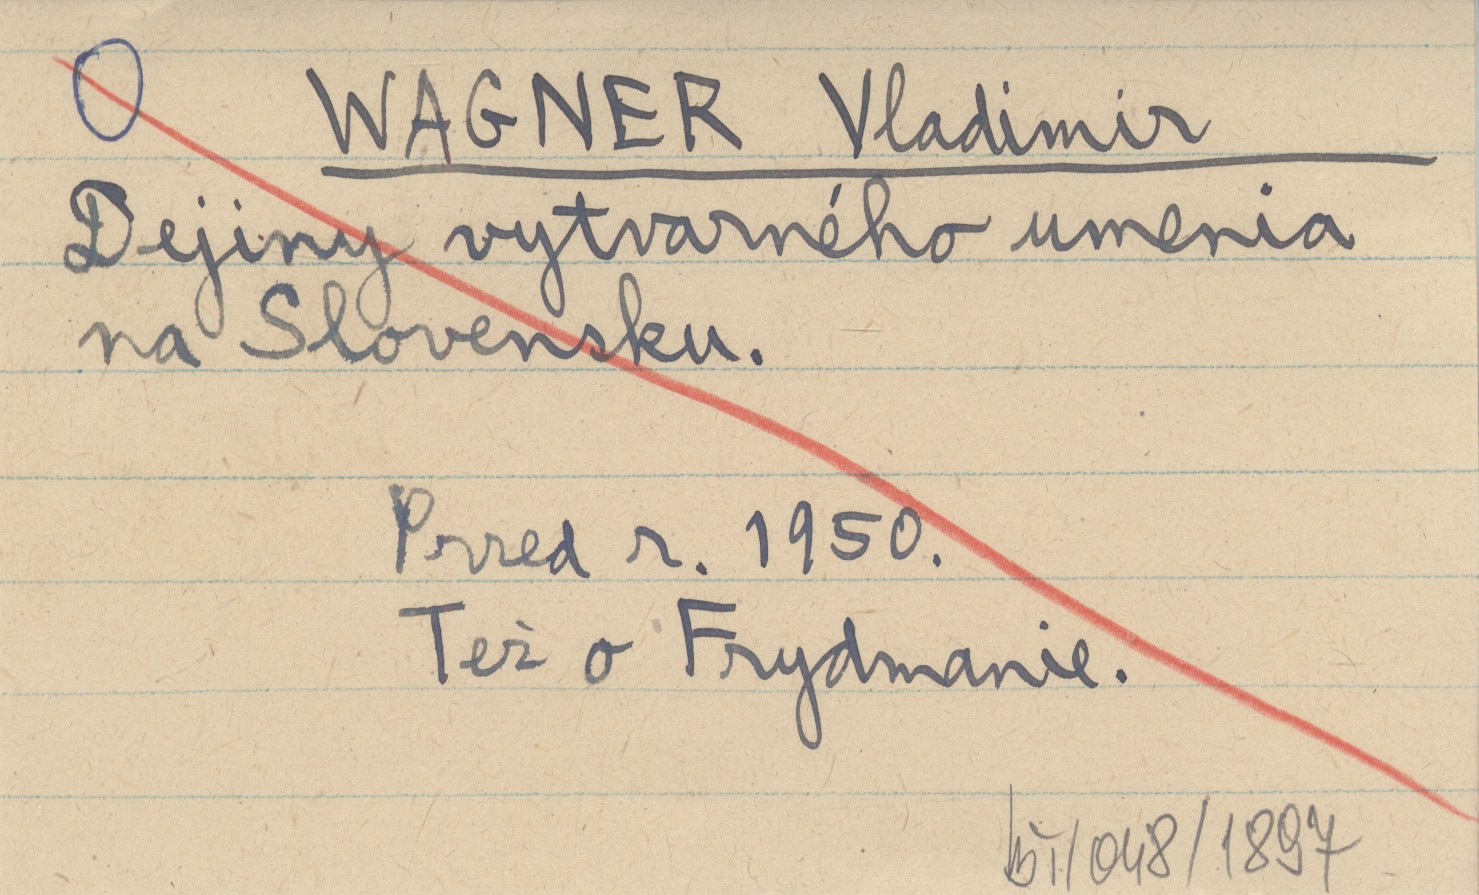 WAGNER Vladimir
Dejiny vytvarného umenia
na Slovensku.
Przed r. 1950.
Też o Frydmanie.
/048/1897